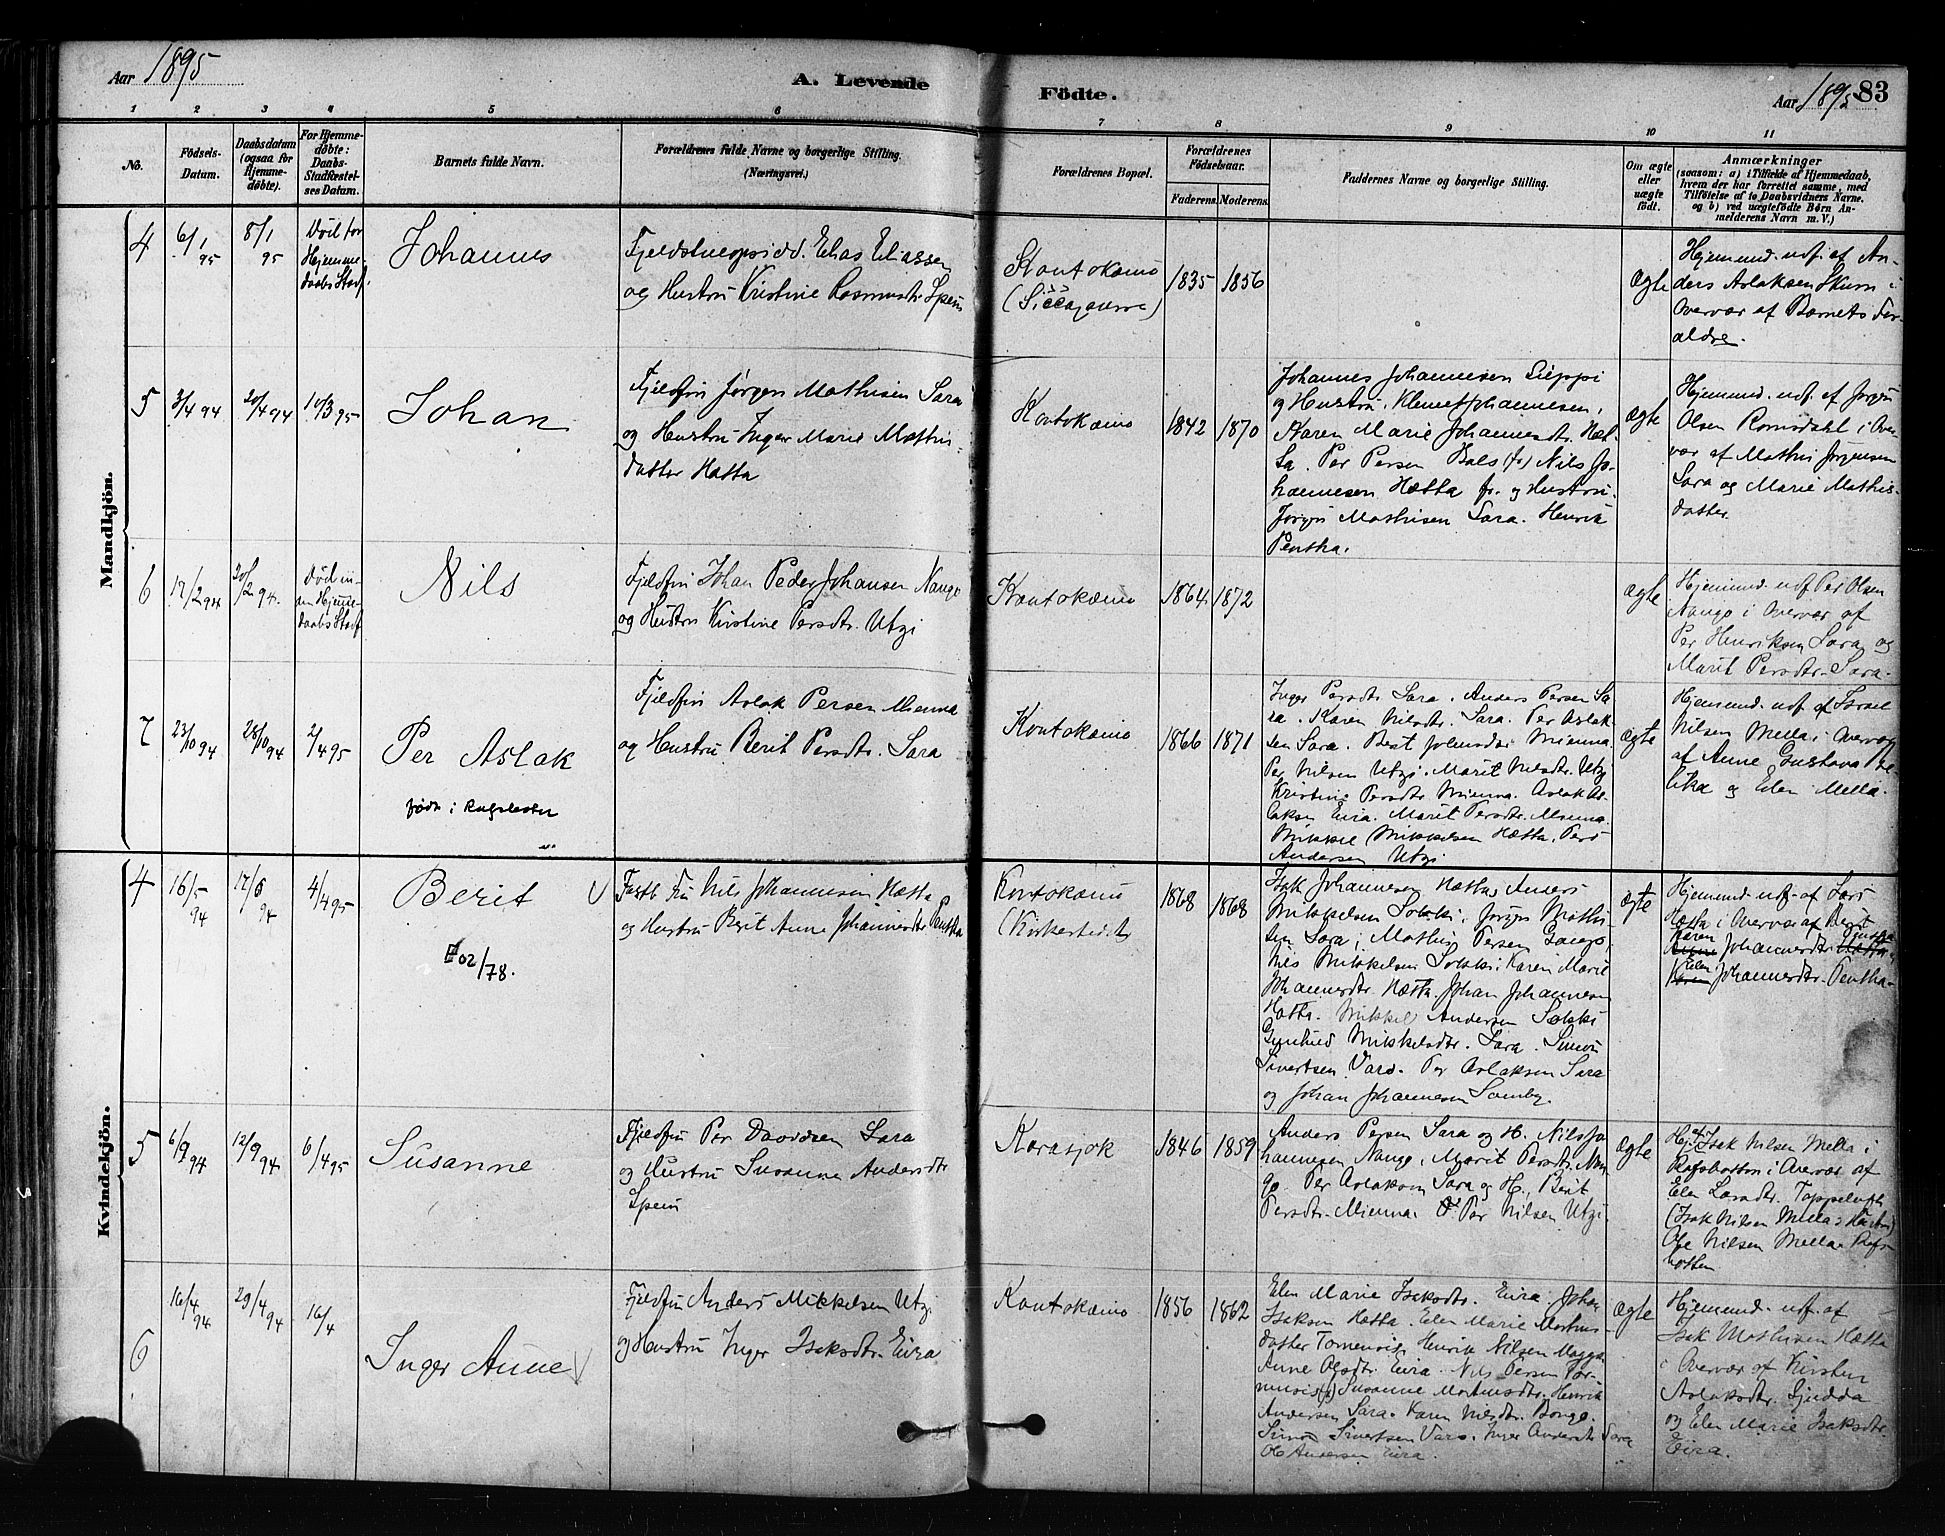 Aar 1895
A. Levende
Födte.
Aar 1895 83
1 2 3 4 5 6 7 8 9 10 11
No.
Födsels-
Datum.
Daabsdatum
(ogsaa for
Hjemme-
døbte).
For Hjemme-
døbte:
Daabs-
Stadfæstel-
ses Datum.
Barnets fulde Navn.
Forældrenes fulde Navne og borgerlige Stilling.
(Næringsvei.)
Forældrenes Bopæl.
Forældrenes
Födselsaar.
Faderens. Moderens.
Faddernes Navne og borgerlige Stilling.
Om ægte
eller
uægte
født.
Anmærkninger
(saasom: a) i Tilfælde af Hjemmedaab,
hvem der har forrettet samme, med
Tilföielse af to Daabsvidners Navne.
og b) ved uægtefödte Börn An-
melderens Navn m. V.)
Mandkjön.
4
6/1 95
8/1 95
Död før
Hjemme-
daabs Stadf.
Johannes
Elias Eliassen
og Hustru Kristine Rasmusdtr. Spein
Koutokæino
1835 1856
ægte
Hjemmed. udf. af An-
ders Aslaksen Skum i
Overvær af Barnets For-
ældre.
5
3/4 94
20/4 94
10/3 95
Johan
Fjeldfin Jørgen Mathisen Sara
og Hustru Inger Marie Mathis-
datter Hætta
Koutokæino
1842 1870
Johannes Johannesen Sieppi
og Hustru, Klemet Johannesen,
Karen Marie Johannesdtr. Hæt-
ta. Per Persen Bals (fr) Nils Jo-
hannesen Hætta fr. og Hustru.
Jørgen Mathisen Sara. Henrik
Pentha.
ægte
Hjemmed. udf. af Jørgen
Olsen Romsdahl i Over-
vær af Mathis Jørgensen
Sara og Marie Mathis-
datter.
6
17/2 94
20/2 94.
Död in-
den Hjemme-
daabs Stadf.
Nils
Fjeldfin Johan Peder Johansen Nango
og Hustru Kristine Persdtr. Utzi
Koutokæino
1864 1872
ægte
Hjemmed. udf. Per Olsen
Nango i Overvær af
Per Henriksen Sara og
Marit Persdtr. Sara.
7
23/10 94
28/10 94
2/4 95
Per Aslak
født i
Fjeldfin Aslak Persen Mienna
og Hustru Berit Persdtr. Sara
Koutokæino
1866 1871
Inger Persdtr. Sara. Anders Persen Sa-
ra. Karen Nilsdtr. Sara. Per Aslak-
sen Sara. Mienna.
Per Nilsen Utzi. Marit Nilsdtr. Utzi
Kristine Persdtr. Mienna. Aslak As-
laksen Eira. Marit Persdtr. Mienna.
Mikkel Mikkelsen Hætta. Per
Andersen Utzi
ægte
Hjemmed. udf. af Israel
Nilsen Mella i Overvær
af Anne Gustava
og Elen Mella.
Kvindekjön.
4
16/5 94
17/6 94
4/4 95
Berit
02/78.
Fastb. Fin Nils Johannesen Hætta
og Hustru Berit Anne Johannesdtr. Pentha
Koutokæino
(Kirkestedet)
1868 1868
Isak Johannesen Hætta, Anders
Mikkelsen Solski, Jørgen Mathi-
sen Sara, Mathis Persen Gaup,
Nils Mikkelsen Solski, Karen Marie
Johannesdtr. Hætta. Johan Johannesen
Hætta. Mikkel Andersen Solski
Gunhild Mikkelsdtr. Sara. Simon
Sivertsen Vars. Per Aslaksen Sara
og Johan Johannesen Somby.
ægte
Hjemmed. udf. af Lars
Hætta i Overvær af Berit
Karen Johannesdtr. Pentha
Elen Johannesdtr. Pentha.
5
6/9 94
12/9 94
6/4 95
Susanne
Fjeldfin Per Davidsen Sara
og Hustru Susanna Andersdtr.
Spein
Karasjok
1846 1859
Anders Persen Sara og H. Nils Jo-
hannesen Nango, Marit Persdtr. Nan-
go. Per Aslaksen Sara og H., Berit
Persdtr. Mienna. Per Nilsen Utzi.
ægte
Hj. af Isak Nilsen Mella i
Rafsbotten i Overvær af
Elen Larsdtr. Toppeluft
(Isak Nilsen Mellas Hustru)
Ole Nilsen Mella Rafs-
botten
6
16/4 94
29/4 94
16/4
Inger Anne
Fjeldfin Anders Mikkelsen Utzi
og Hustru Inger Isaksdtr. Eira
Koutokæino
1856 1862
Elen Marie Isaksdtr. Eira Johan
Isaksen Hætta. Elen Marie Mortens-
datter Tornensis, Henrik Nilsen Magga
Anne Olsdtr. Eira. Nils Persen Tor-
nensis, Susanne Mortensdtr. Henrik
Andersen Sara. Karen Nilsdtr. Bongo.
Simon Sivertsen Vars. Inger Andersdtr. Sara
Ole Andersen Eira.
ægte
Hjemmed. udf. af
Isak Mathisen Hætta
i Overvær af Kirsten
Aslaksdtr. Sjudda
og Elen Marie Isaksdtr.
Eira.